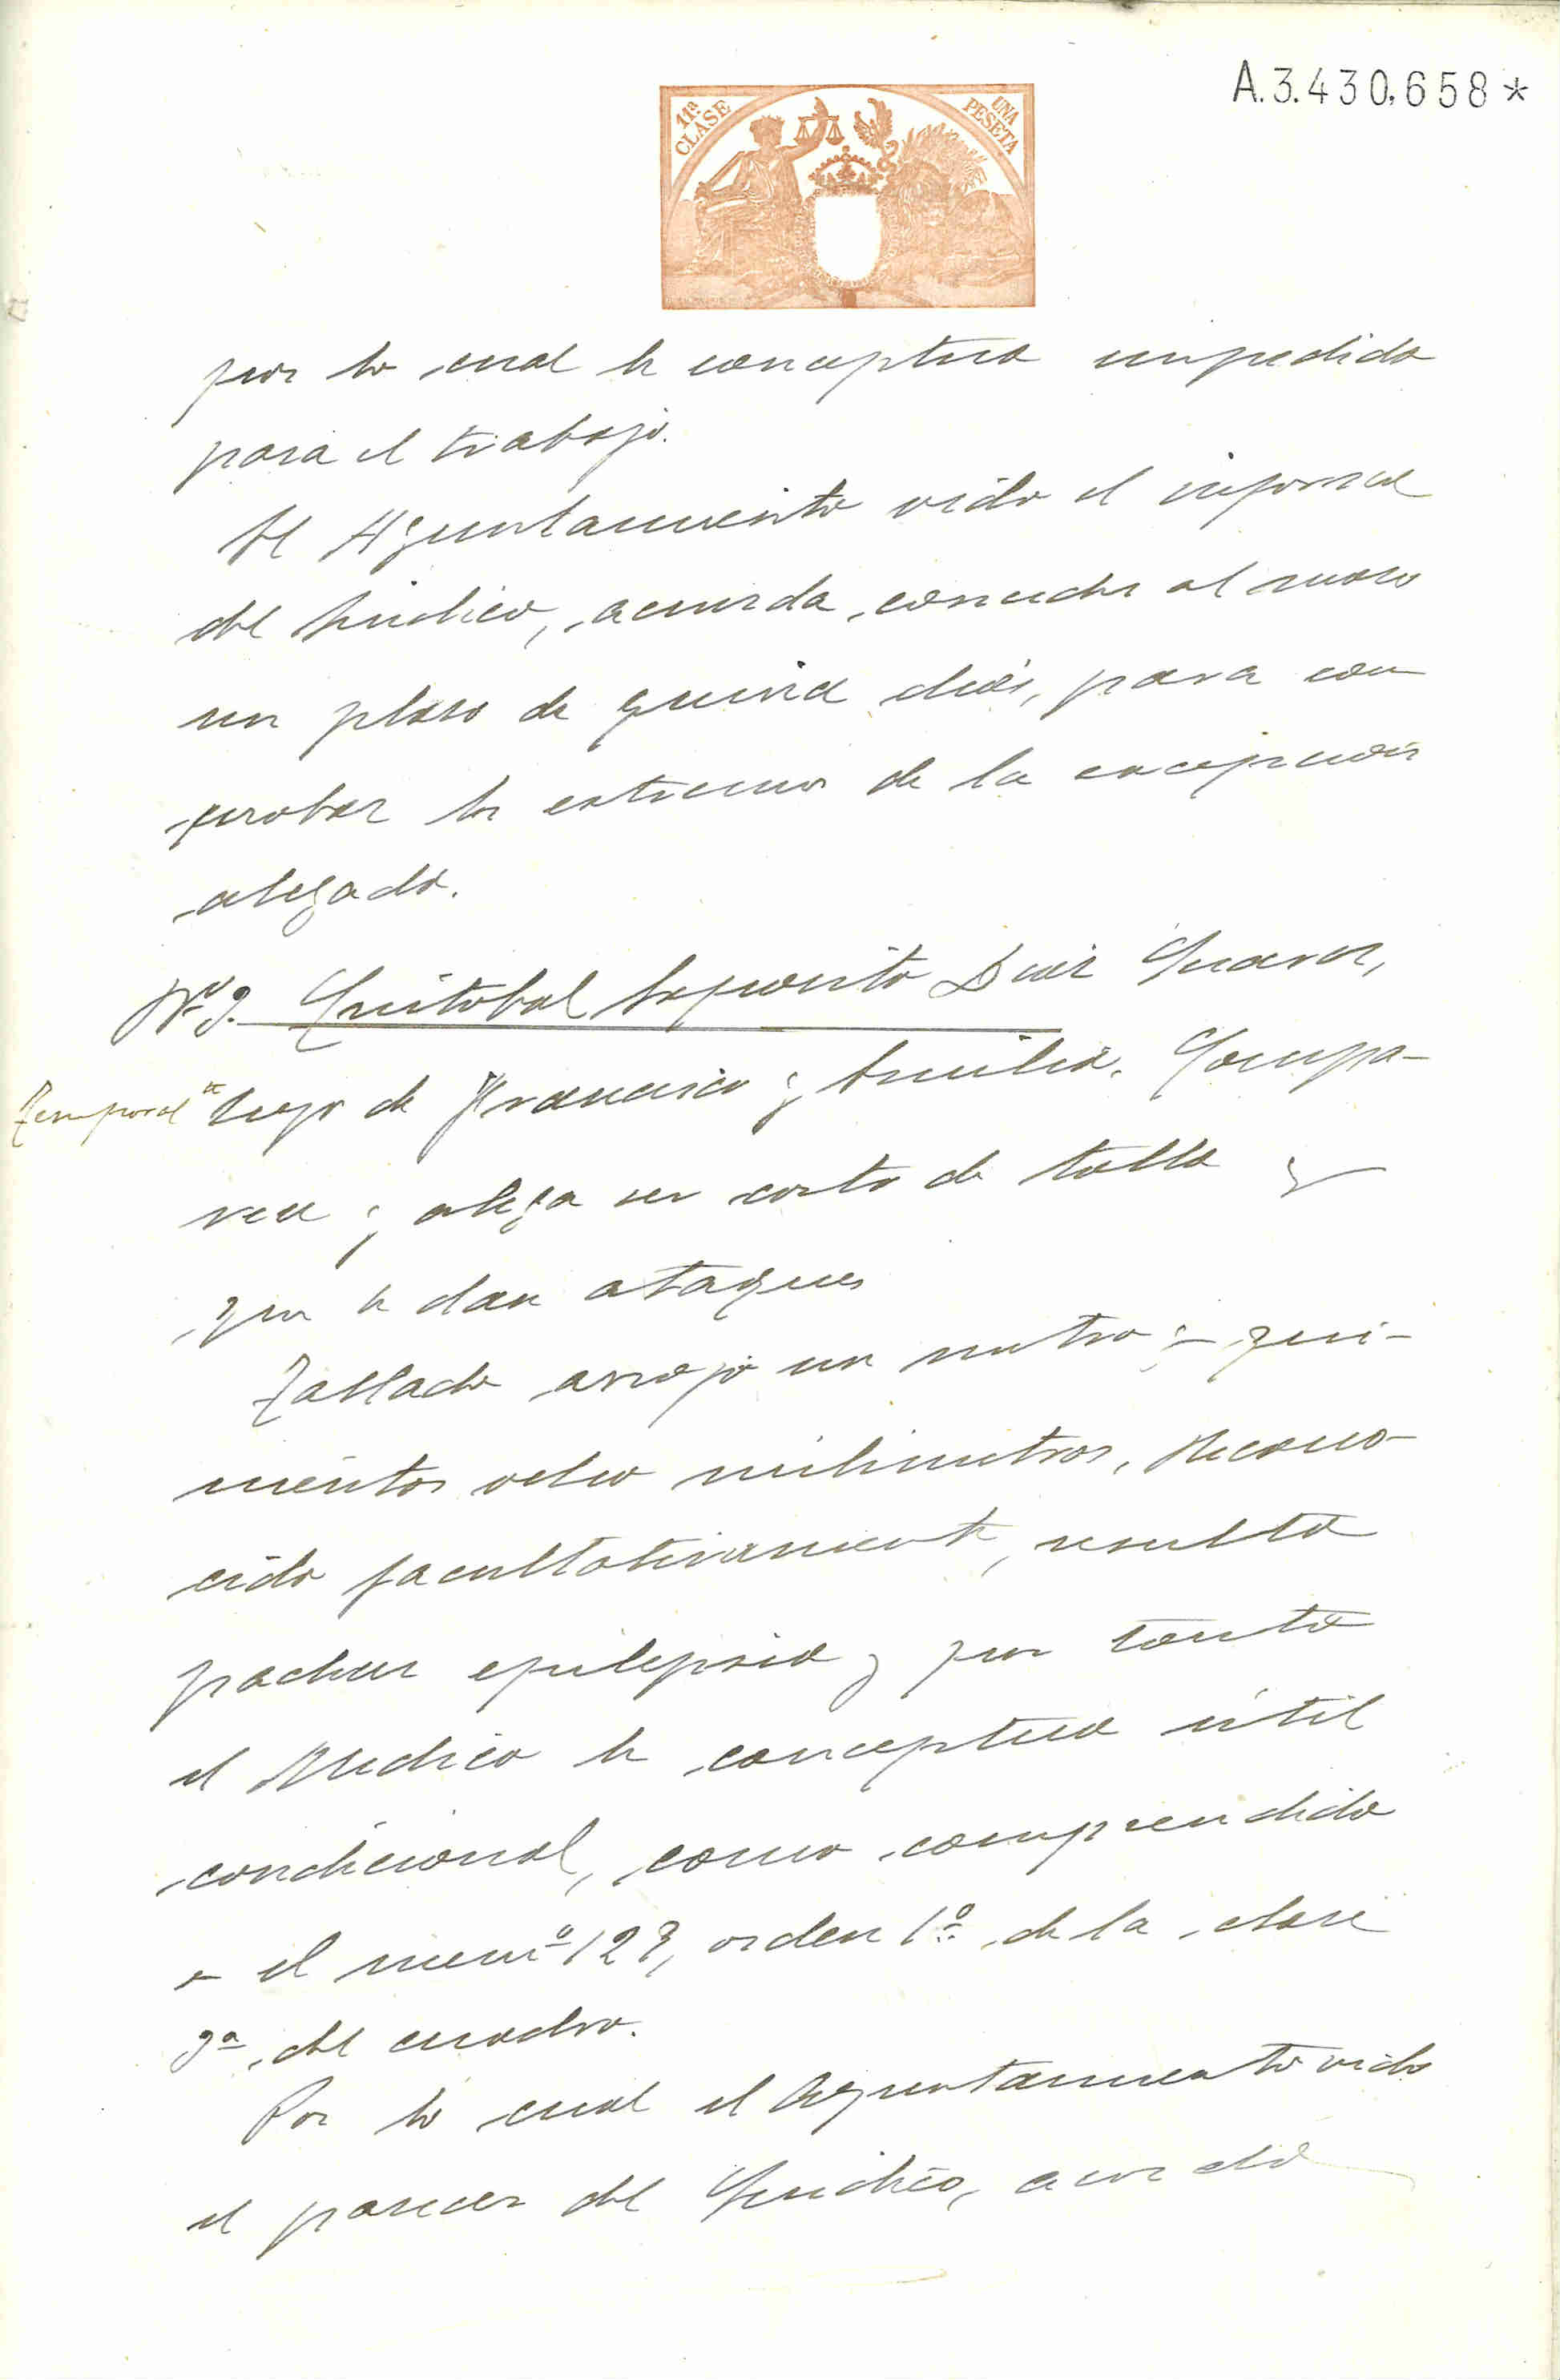 A.3.430.658*
11ª CLASE
UNA PESETA
por lo cual le conceptua impedido
para el trabajo.
El Ayuntamiento oido el informe
del Sindico, acuerda conceder al mozo
un plazo de quince dias, para com
probar los extremos de la excepcion
alegada.
Nº 9. Cristobal Diaz
Temporal hijo de Francisco y Emilia. Compa-
rece y alega ser corto de talla y
que le dan ataques
Tallado arrojó un metro y qui-
nientos ocho milimetros. Recono-
cido facultativamente, resulta
padecer epilepsia y por tanto
el Medico le conceptua útil
condicional, como comprendido
en el numº 127, orden 1º de la clase
3ª del cuadro.
Por lo cual el Ayuntamiento oido
el parecer del Sindico, acordó